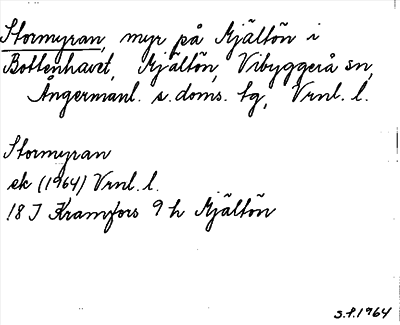 Stormyran, myr på Mjältön i
Bottenhavet, Mjältön, Vibyggerå sn,
Ångermanl. s. doms. tg, Vrnl. l.
Stormyran
ek (1964) Vrnl. l.
18 J Kramfors 9 h Mjältön
S.F. 1964